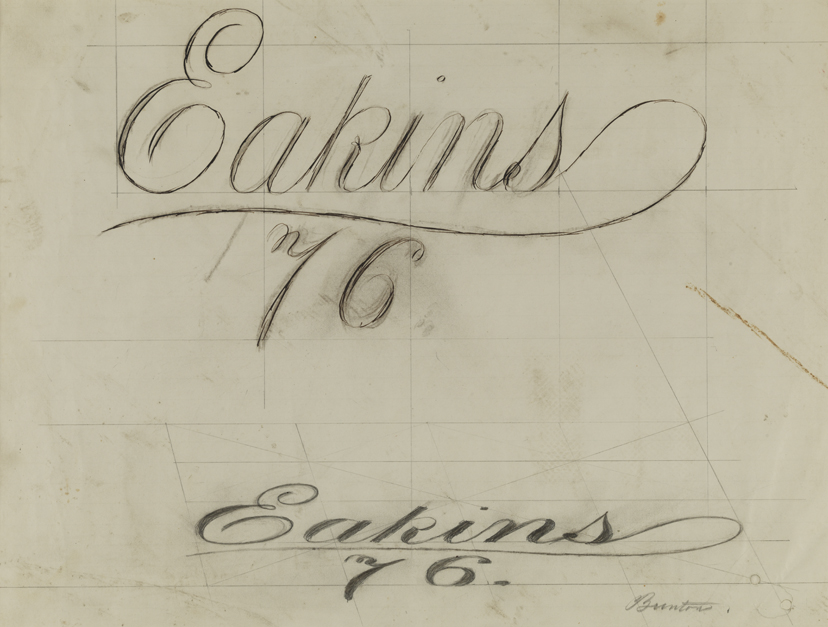 Eakins
76
Eakins
76.